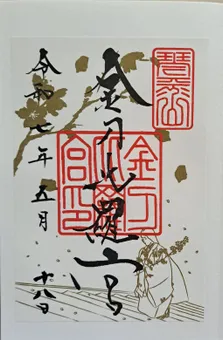 金刀比羅宮
金刀比羅宮印
令和七年五月
十八日